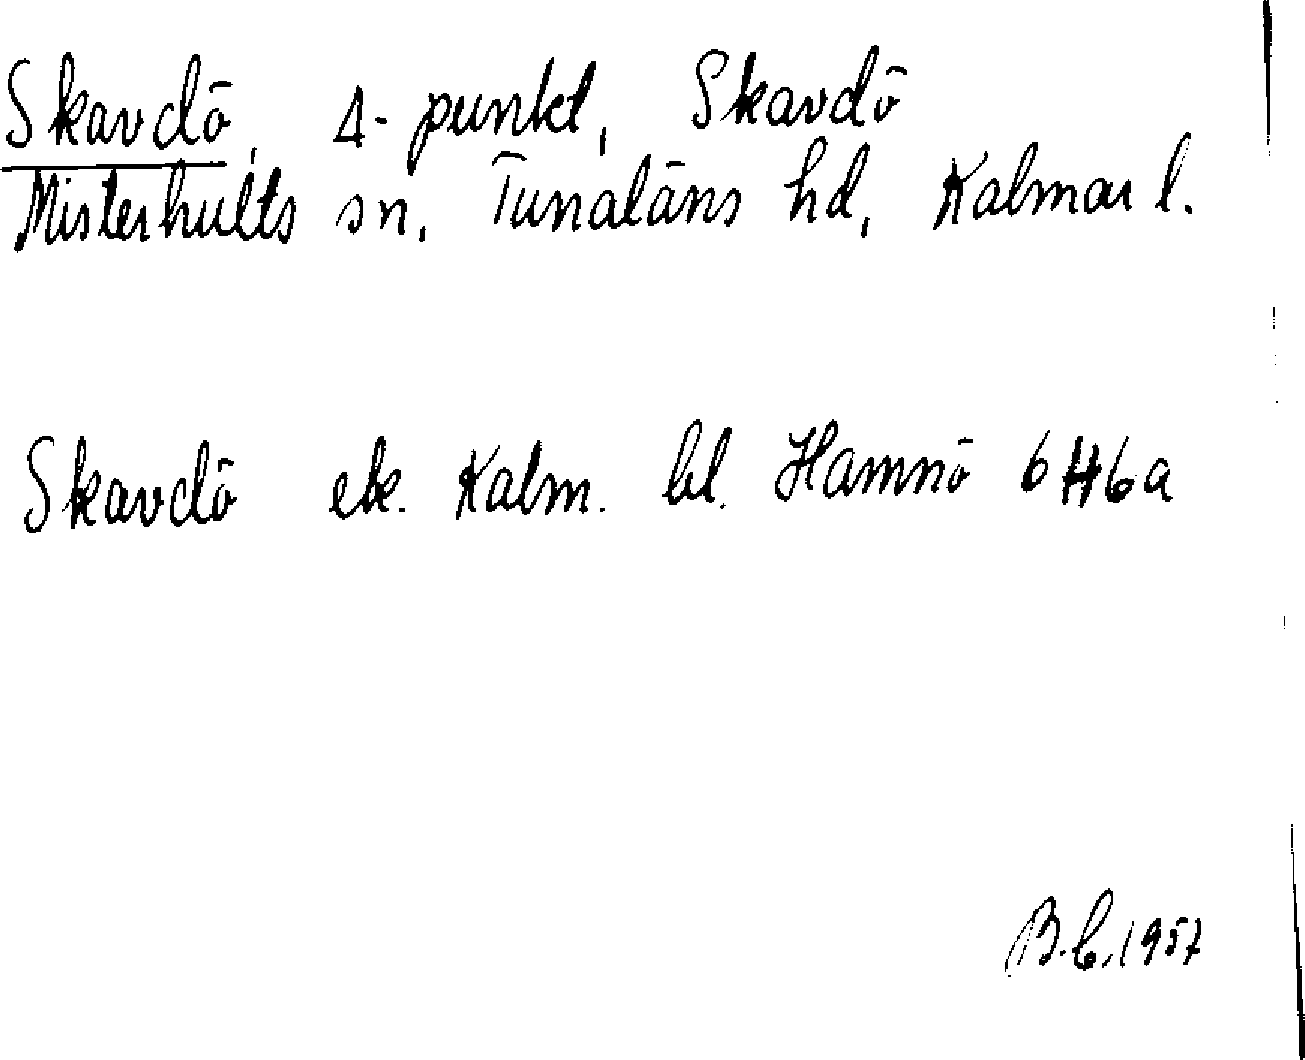 Skavdö, Δ-punkt, Skavdö
Misterhults sn, Tunaläns hd, Kalmar l.
Skavdö ek. Kalm. bl. Hamnö 6H6a
B.C. 1957